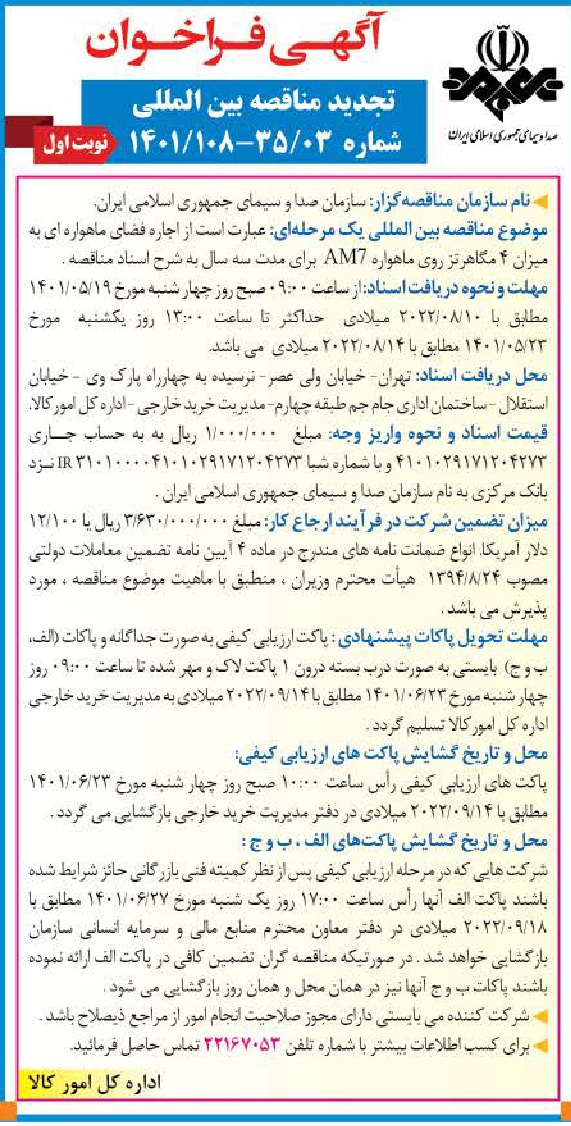 آگهی فراخوان
صدا و سیمای جمهوری اسلامی ایران
تجدید مناقصه بین المللی
شماره ۱۴۰۱/۱۰۸-۳۵/۰۳
نوبت اول
نام سازمان مناقصه‌گزار: سازمان صدا و سیمای جمهوری اسلامی ایران.
موضوع مناقصه بین المللی یک مرحله‌ای: عبارت است از اجاره فضای ماهواره ای به
میزان ۴ مگاهرتز روی ماهواره AM7 برای مدت سه سال به شرح اسناد مناقصه .
مهلت و نحوه دریافت اسناد: از ساعت ۰۹:۰۰ صبح روز چهار شنبه مورخ ۱۴۰۱/۰۵/۱۹
مطابق با ۲۰۲۲/۰۸/۱۰ میلادی حداکثر تا ساعت ۱۳:۰۰ روز یکشنبه مورخ
۱۴۰۱/۰۵/۲۳ مطابق با ۲۰۲۲/۰۸/۱۴ میلادی می باشد.
محل دریافت اسناد: تهران- خیابان ولی عصر- نرسیده به چهارراه پارک وی - خیابان
استقلال - ساختمان اداری جام جم طبقه چهارم- مدیریت خرید خارجی - اداره کل امور کالا.
قیمت اسناد و نحوه واریز وجه: مبلغ ۱/۰۰۰/۰۰۰ ریال به به حساب جـاری
۴۱۰۱۰۲۹۱۷۱۲۰۴۲۷۳ و با شماره شبا IR ۳۱۰۱۰۰۰۰۴۱۰۱۰۲۹۱۷۱۲۰۴۲۷۳ نـزد
بانک مرکزی به نام سازمان صدا و سیمای جمهوری اسلامی ایران .
میزان تضمین شرکت در فرآیند ارجاع کار: مبلغ ۳/۶۳۰/۰۰۰/۰۰۰ ریال یا ۱۲/۱۰۰
دلار آمریکا. انواع ضمانت نامه های مندرج در ماده ۴ آیین نامه تضمین معاملات دولتی
مصوب ۱۳۹۴/۸/۲۴ هیأت محترم وزیران ، منطبق با ماهیت موضوع مناقصه ، مورد
پذیرش می باشد .
مهلت تحویل پاکات پیشنهادی : پاکت ارزیابی کیفی به صورت جداگانه و پاکات (الف،
ب و ج) بایستی به صورت درب بسته درون ۱ پاکت لاک و مهر شده تا ساعت ۰۹:۰۰ روز
چهار شنبه مورخ ۱۴۰۱/۰۶/۲۳ مطابق با ۲۰۲۲/۰۹/۱۴ میلادی به مدیریت خرید خارجی
اداره کل امور کالا تسلیم گردد .
محل و تاریخ گشایش پاکت های ارزیابی کیفی:
پاکت های ارزیابی کیفی رأس ساعت ۱۰:۰۰ صبح روز چهار شنبه مورخ ۱۴۰۱/۰۶/۲۳
مطابق با ۲۰۲۲/۰۹/۱۴ میلادی در دفتر مدیریت خرید خارجی بازگشایی می گردد .
محل و تاریخ گشایش پاکت‌های الف ، ب و ج :
شرکت هایی که در مرحله ارزیابی کیفی پس از نظر کمیته فنی بازرگانی حائز شرایط شده
باشند پاکت الف آنها رأس ساعت ۱۷:۰۰ روز یک شنبه مورخ ۱۴۰۱/۰۶/۲۷ مطابق با
۲۰۲۲/۰۹/۱۸ میلادی در دفتر معاون محترم منابع مالی و سرمایه انسانی سازمان
بازگشایی خواهد شد . در صورتیکه مناقصه گران تضمین کافی در پاکت الف ارائه نموده
باشند پاکات ب و ج آنها نیز در همان محل و همان روز بازگشایی می شود .
شرکت کننده می بایستی دارای مجوز صلاحیت انجام امور از مراجع ذیصلاح باشد .
برای کسب اطلاعات بیشتر با شماره تلفن ۲۲۱۶۷۰۵۳ تماس حاصل فرمائید.
اداره کل امور کالا